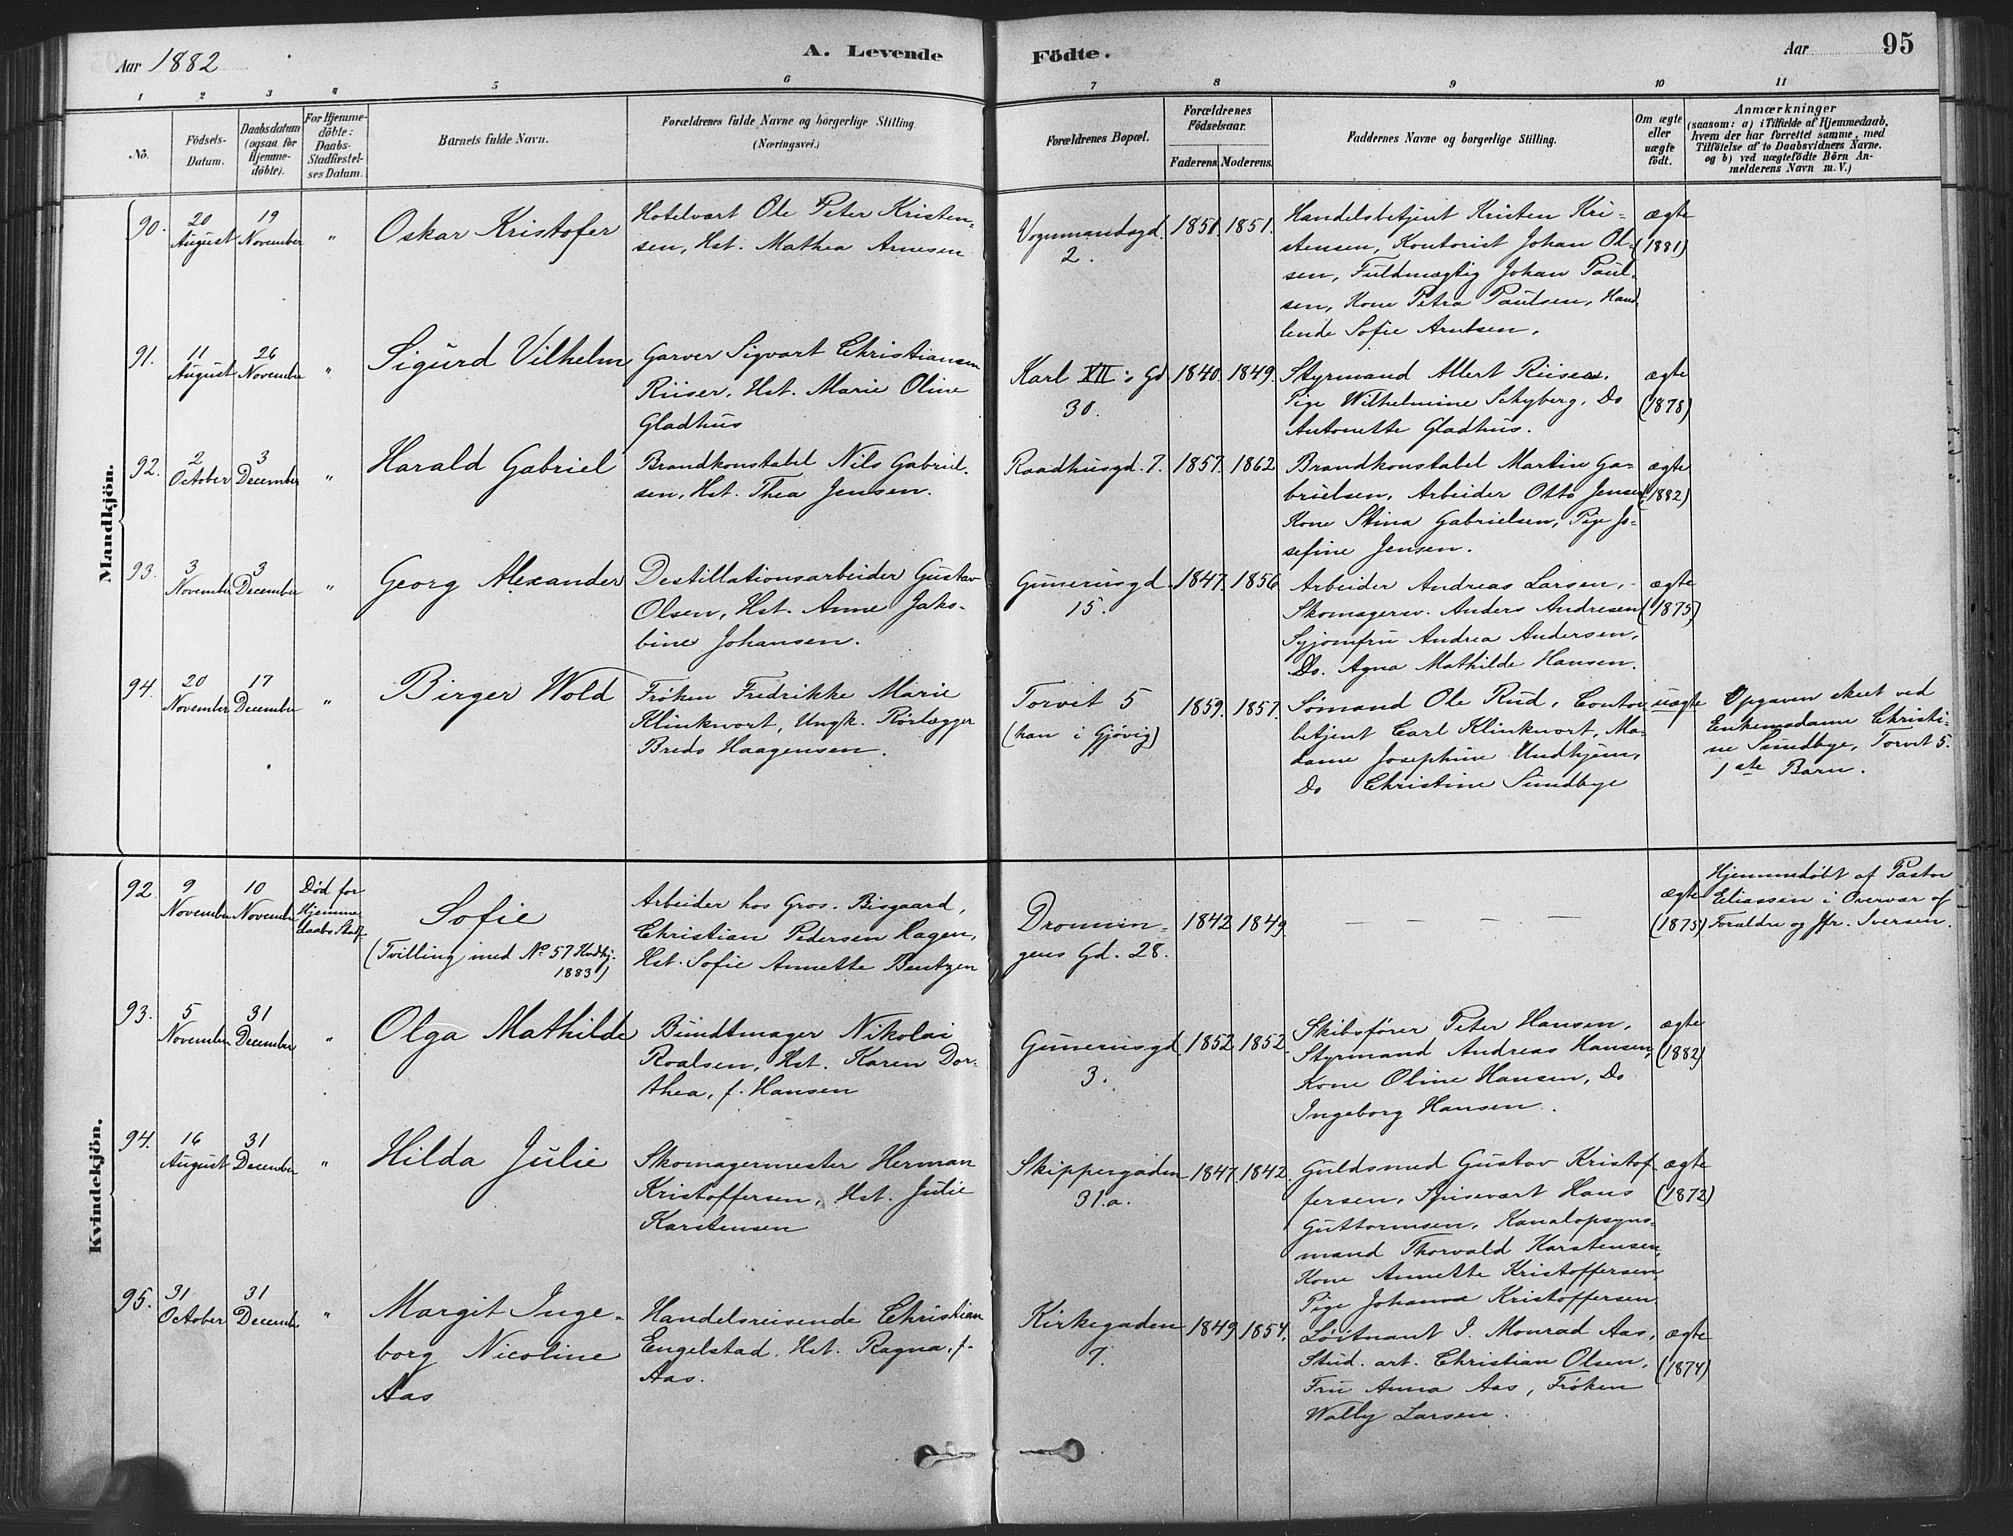 Aar 1882
A. Levende
Födte.
Aar
95
1
2
3
4
5
6
7
8
9
10
11
No.
Födsels-
Datum.
Daabsdatum
(ogsaa for
Hjemme-
döbte).
For Hjemme-
döbte:
Daabs-
Stadfæstel-
ses Datum.
Barnets fulde Navn.
Forældrenes fulde Navne og borgerlige Stilling.
(Næringsvei.)
Forældrenes Bopæl.
Forældrenes
Födselsaar.
Faderens.
Moderens.
Faddernes Navne og borgerlige Stilling.
Om ægte
eller
uægte
födt.
Anmærkninger
(saasom: a) i Tilfælde af Hjemmedaab,
hvem der har forrettet samme, med
Tilföielse af to Daabsvidners Navne.
og b) ved uægtefödte Börn An-
melderens Navn m. V.)
Mandkjön.
90.
20
August
19
November
"
Oskar Kristofer
Hotelvært Ole Peter Kristen-
sen, Hst. Mathea Arnesen
Vognmandsgd.
2.
1851.
1851.
Handelsbetjent Kristen Kri-
stensen, Kontorist Johan Ol-
sen, Fuldmægtig Johan Paul-
sen, Kone Petra Paulsen, Hand
lende Sofie Arntsen.
ægte
(1881)
91.
11
August
26
November
"
Sigurd Vilhelm
Garver Sigvart Christiansen
Riiser, Hst. Marie Oline
Gladhus
Karl XII's Gd
30.
1840.
1849.
Styrmand Allert Riiser.
Pige Wilhelmine Schyberg. Do
Antonette Gladhus.
ægte
(1878)
92.
2
October
3
December
"
Harald Gabriel
Brandkonstabel Nils Gabriel-
sen, Hst. Thea Jensen.
Raadhusgd. 7.
1857.
1862
Brandkonstabel Martin Ga-
brielsen, Arbeider Otto Jensen
Kone Stina Gabrielsen, Pige Jo-
sefine Jensen.
ægte
(1882)
93.
3
November
3
December
"
Georg Alexander
Destillationsarbeider Gustav
Olsen, Hst. Anne Jako-
bine Johansen.
Gunerusgd
15.
1847.
1856
Arbeider Andreas Larsen,
Skomagersv. Anders Andresen
Syjomfru Andrea Andersen,
Do. Agna Mathilde Hansen.
ægte
(1875)
94.
20
November
17
December
"
Birger Wold
Frøken Fredrikke Marie
Klinkwort, Ungk. Rørlægger
Breds Haagensen.
Torvet 5
(han i Gjøvig)
1859.
1857.
Sømand Ole Rud, Contor-
betjent Carl Klinkwort, Ma-
dame Josephine Undhjem,
Do Christine Sundbye
uægte
Opgaven skeet ved
Enkemadame Christi-
ne Sundbye, Torvet 5.
1ste Barn.
Kvindekjön.
92
9
November
10
November
Død før
Hjemme-
daabs Stadf.
Sofie
(Tvilling med No 57 Hndkj.
1883)
Arbeider hos Gros. Bisgaard,
Christian Pedersen Hagen,
Hst. Sofie Annette Bentzen
Dronnin-
gens Gd. 28.
1842
1849.
— — — —
ægte
(1875)
Hjemmedøbt af Pastor
Eliassen i Overvær af
Forældre og Jfr. Iversen.
93.
5
November
31
December
"
Olga Mathilde
Bundtmager Nikolai
Roalsen, Hst. Karen Dor-
thea, f. Hansen
Gunerusgd.
3.
1852
1852
Skibsfører Peter Hansen,
Styrmand Andreas Hansen,
Kone Oline Hansen, Do
Ingeborg Hansen.
ægte
(1882)
94.
16
August
31
December
"
Hilda Julie
Skomagermester Herman
Kristoffersen, Hst. Julie
Karstensen
Skippergaden
31.a.
1847.
1842
Guldsmed Gustav Kristof
fersen, Spisevært Hans
Guttormsen, Kanalopsyns-
mand Thorvald Karstensen,
Kone Annette Kristoffersen,
Pige Johanna Kristoffersen
ægte
(1872)
95.
31
October
31
December
"
Margit Inge-
borg Nicoline
Aas
Handelsreisende Christian
Engelstad, Hst. Ragna, f.
Aas.
Kirkegaden
7.
1849
1854.
Løitnant I. Monrad Aas,
Stud. art. Christian Olsen,
Fru Anna Aas, Frøken
Wally Larsen.
ægte
(1874)